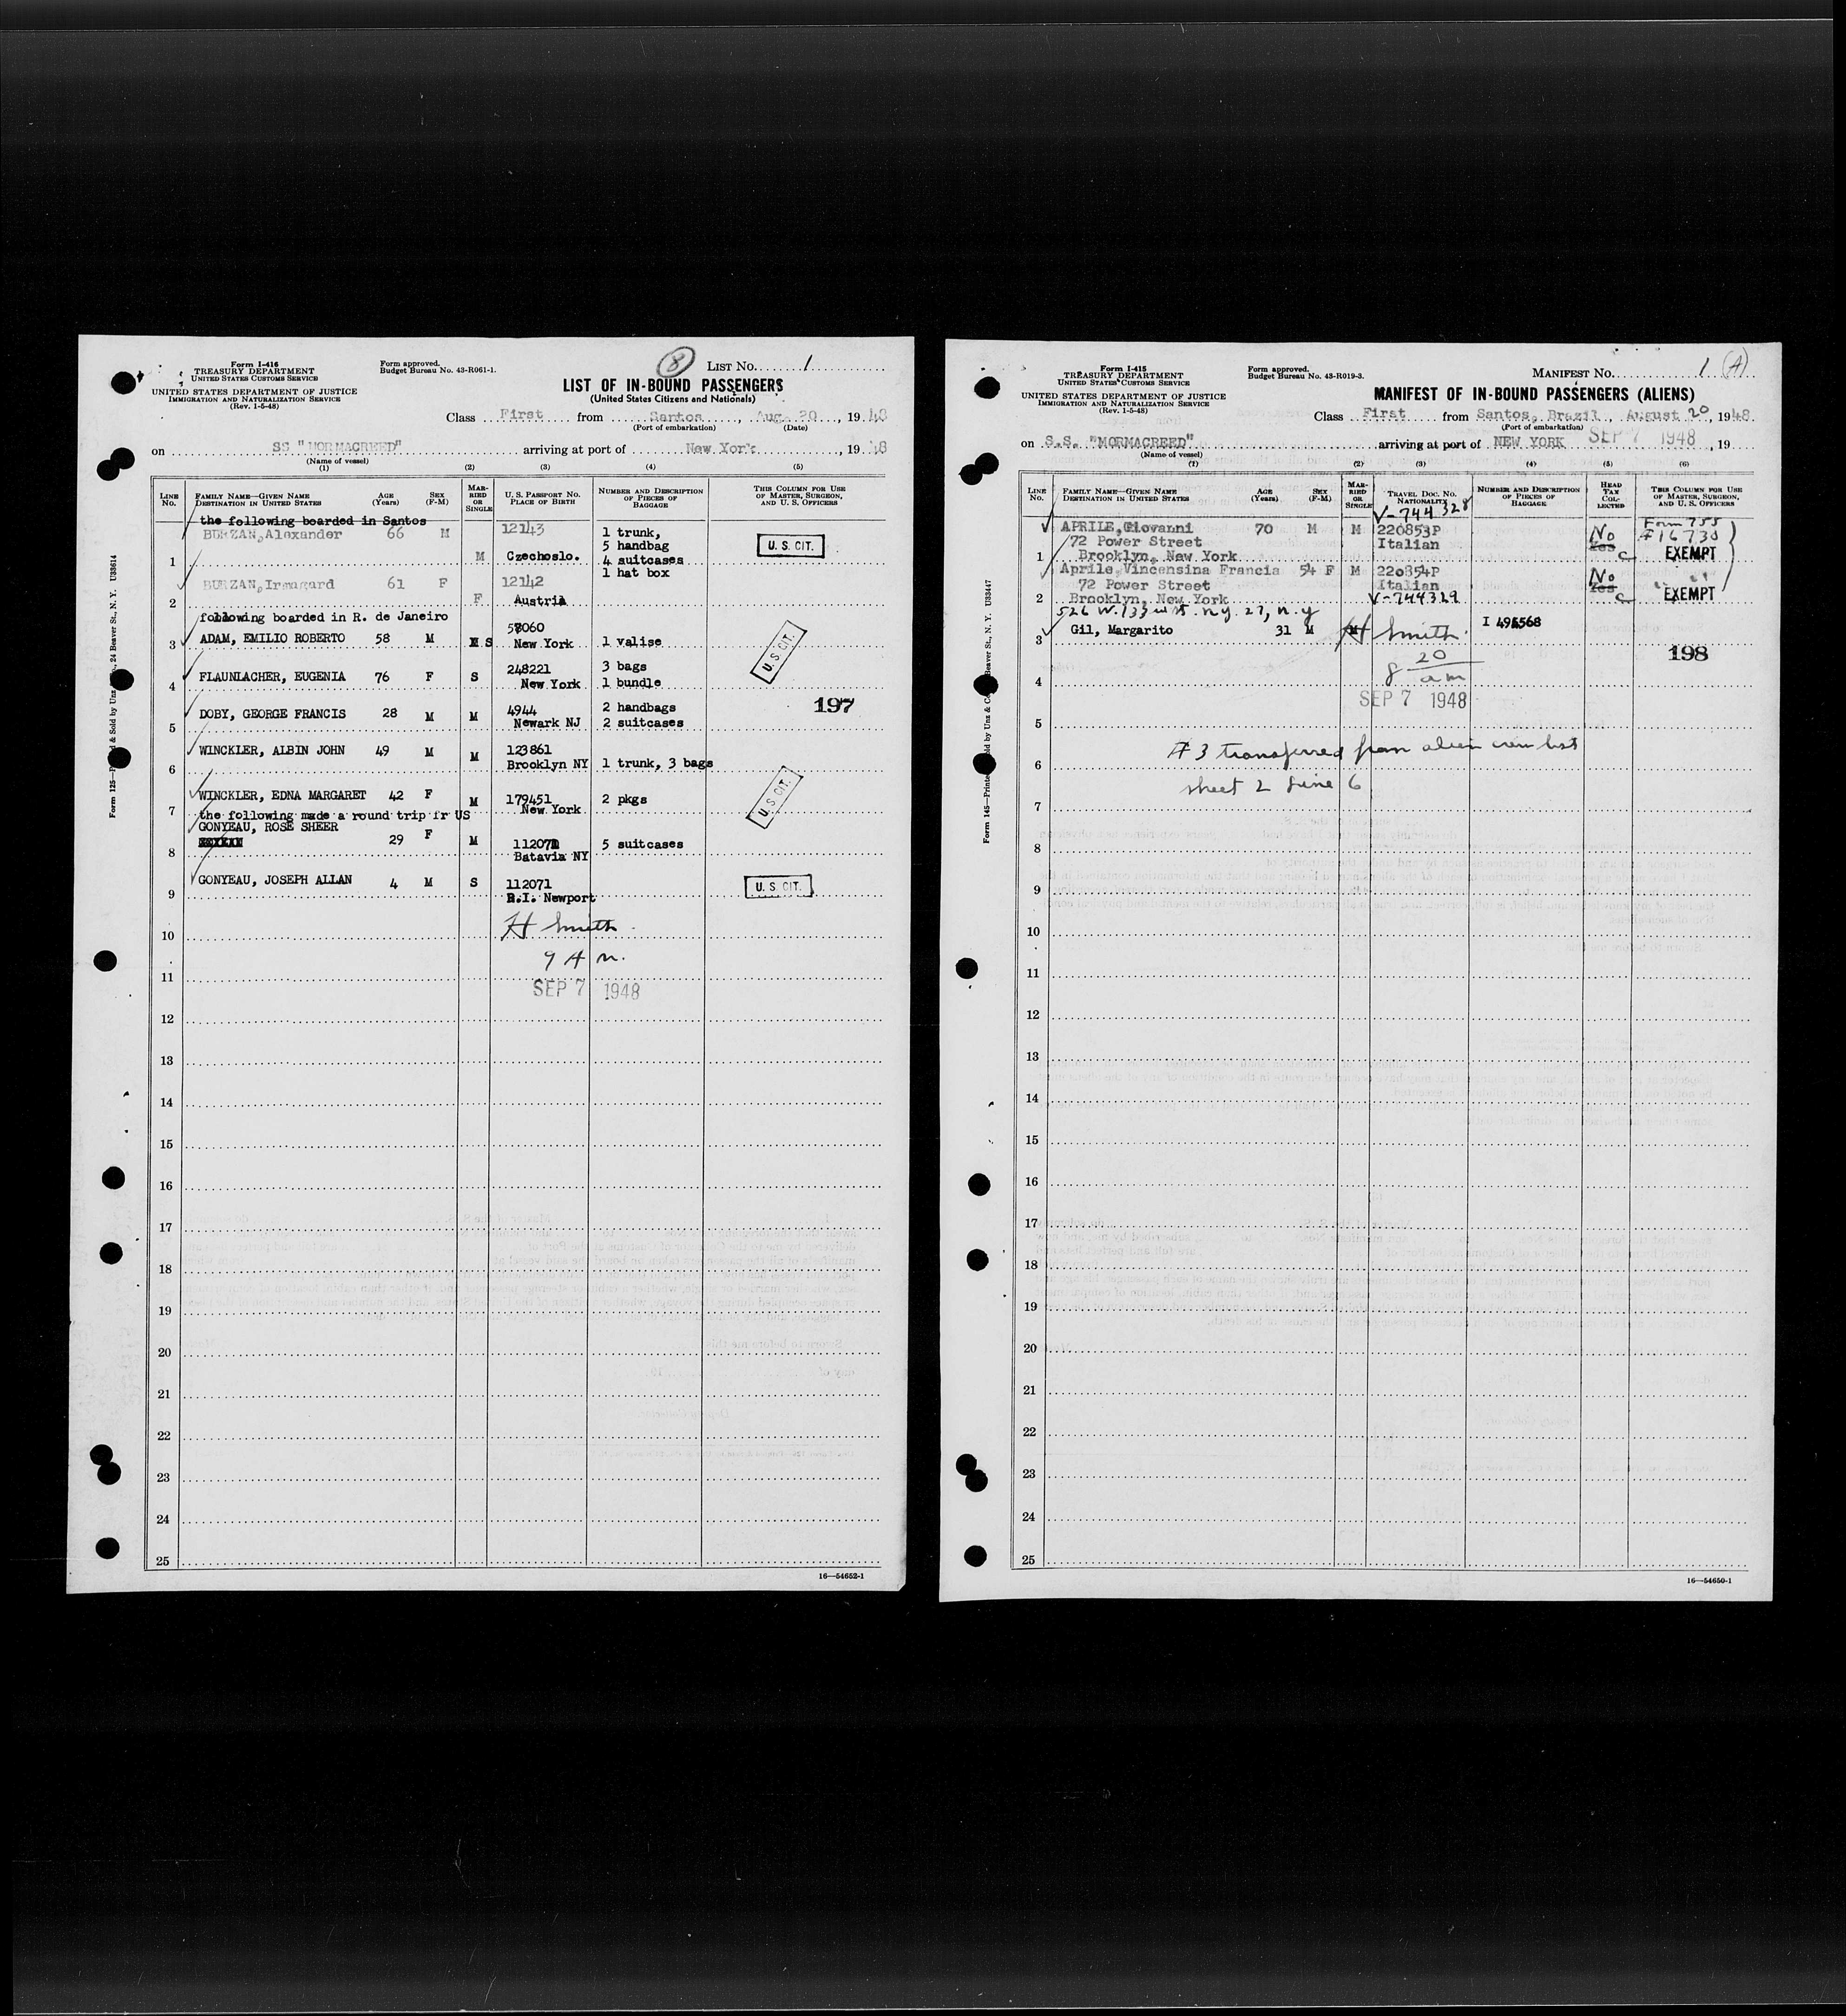 Form I-416
TREASURY DEPARTMENT
UNITED STATES CUSTOMS SERVICE
UNITED STATES DEPARTMENT OF JUSTICE
IMMIGRATION AND NATURALIZATION SERVICE
(Rev. 1-5-48)
Form approved.
Budget Bureau No. 43-R061-1.
8
LIST No. 1
LIST OF IN-BOUND PASSENGERS
(United States Citizens and Nationals)
Class First from Santos, Aug. 20, 1948
(Port of embarkation) (Date)
on SS "MORMACREED" arriving at port of New York, 1948
(Name of vessel)
(1) (2) (3) (4) (5)
LINE No. FAMILY NAME—GIVEN NAME DESTINATION IN UNITED STATES AGE (Years) SEX (F-M) MARRIED OR SINGLE U. S. PASSPORT NO. PLACE OF BIRTH NUMBER AND DESCRIPTION OF PIECES OF BAGGAGE THIS COLUMN FOR USE OF MASTER, SURGEON, AND U. S. OFFICERS
the following boarded in Santos
1 BURZAN, Alexander 66 M M 12143 Czechoslo. 1 trunk, 5 handbag 4 suitcases 1 hat box U. S. CIT.
2 BURZAN, Irmagard 61 F F 12142 Austria
following boarded in R. de Janeiro
3 ADAM, EMILIO ROBERTO 58 M S 57060 New York 1 valise U. S. CIT.
4 FLAUNLACHER, EUGENIA 76 F S 248221 New York 3 bags 1 bundle
197
5 DOBY, GEORGE FRANCIS 28 M M 4944 Newark NJ 2 handbags 2 suitcases
6 WINCKLER, ALBIN JOHN 49 M M 123861 Brooklyn NY 1 trunk, 3 bags
7 WINCKLER, EDNA MARGARET 42 F M 179451 New York 2 pkgs U. S. CIT.
the following made a round trip fr US
8 GONYEAU, ROSE SHEER 29 F M 112071 Batavia NY 5 suitcases
9 GONYEAU, JOSEPH ALLAN 4 M S 112071 R.I. Newport U. S. CIT.
10 H Smith
9 A m.
11 SEP 7 1948
12
13
14
15
16
17
18
19
20
21
22
23
24
25
16—54652-1
Form I-415
TREASURY DEPARTMENT
UNITED STATES CUSTOMS SERVICE
UNITED STATES DEPARTMENT OF JUSTICE
IMMIGRATION AND NATURALIZATION SERVICE
(Rev. 1-5-48)
Form approved.
Budget Bureau No. 43-R019-3.
MANIFEST No. 1 (A)
MANIFEST OF IN-BOUND PASSENGERS (ALIENS)
Class First from Santos, Brazil, August 20, 1948
(Port of embarkation)
on S.S. "MORMACREED" arriving at port of NEW YORK SEP 7 1948, 19
(Name of vessel)
(1) (2) (3) (4) (5) (6)
LINE No. FAMILY NAME—GIVEN NAME DESTINATION IN UNITED STATES AGE (Years) SEX (F-M) MARRIED OR SINGLE TRAVEL DOC. NO. NATIONALITY NUMBER AND DESCRIPTION OF PIECES OF BAGGAGE HEAD TAX COLLECTED THIS COLUMN FOR USE OF MASTER, SURGEON, AND U. S. OFFICERS
V-744328
1 APRILE, Giovanni 70 M M 220853P Italian No Yes C Form 755 #16730 EXEMPT
72 Power Street
Brooklyn, New York
2 Aprile Vincensina Francia 54 F M 220854P Italian No Yes C " " EXEMPT
72 Power Street
Brooklyn, New York V-744329
526 W. 133rd St. N.Y. 27, n.y
3 Gil, Margarito 31 M M H Smith I 495568
198
8 20 am
4
SEP 7 1948
5
# 3 transferred from alien crew list
6
sheet 2 Line 6
7
8
9
10
11
12
13
14
15
16
17
18
19
20
21
22
23
24
25
16—54650-1